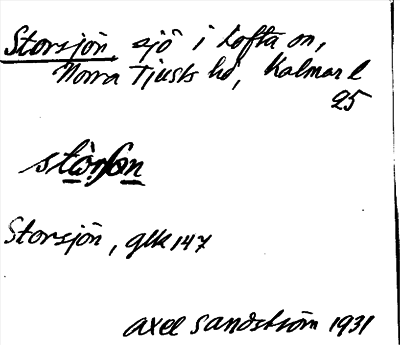 Storsjön, sjö i Lofta sn,
Norra Tjusts hd, Kalmar l
25
Storsjön, glk 147
Axel Sandström 1931